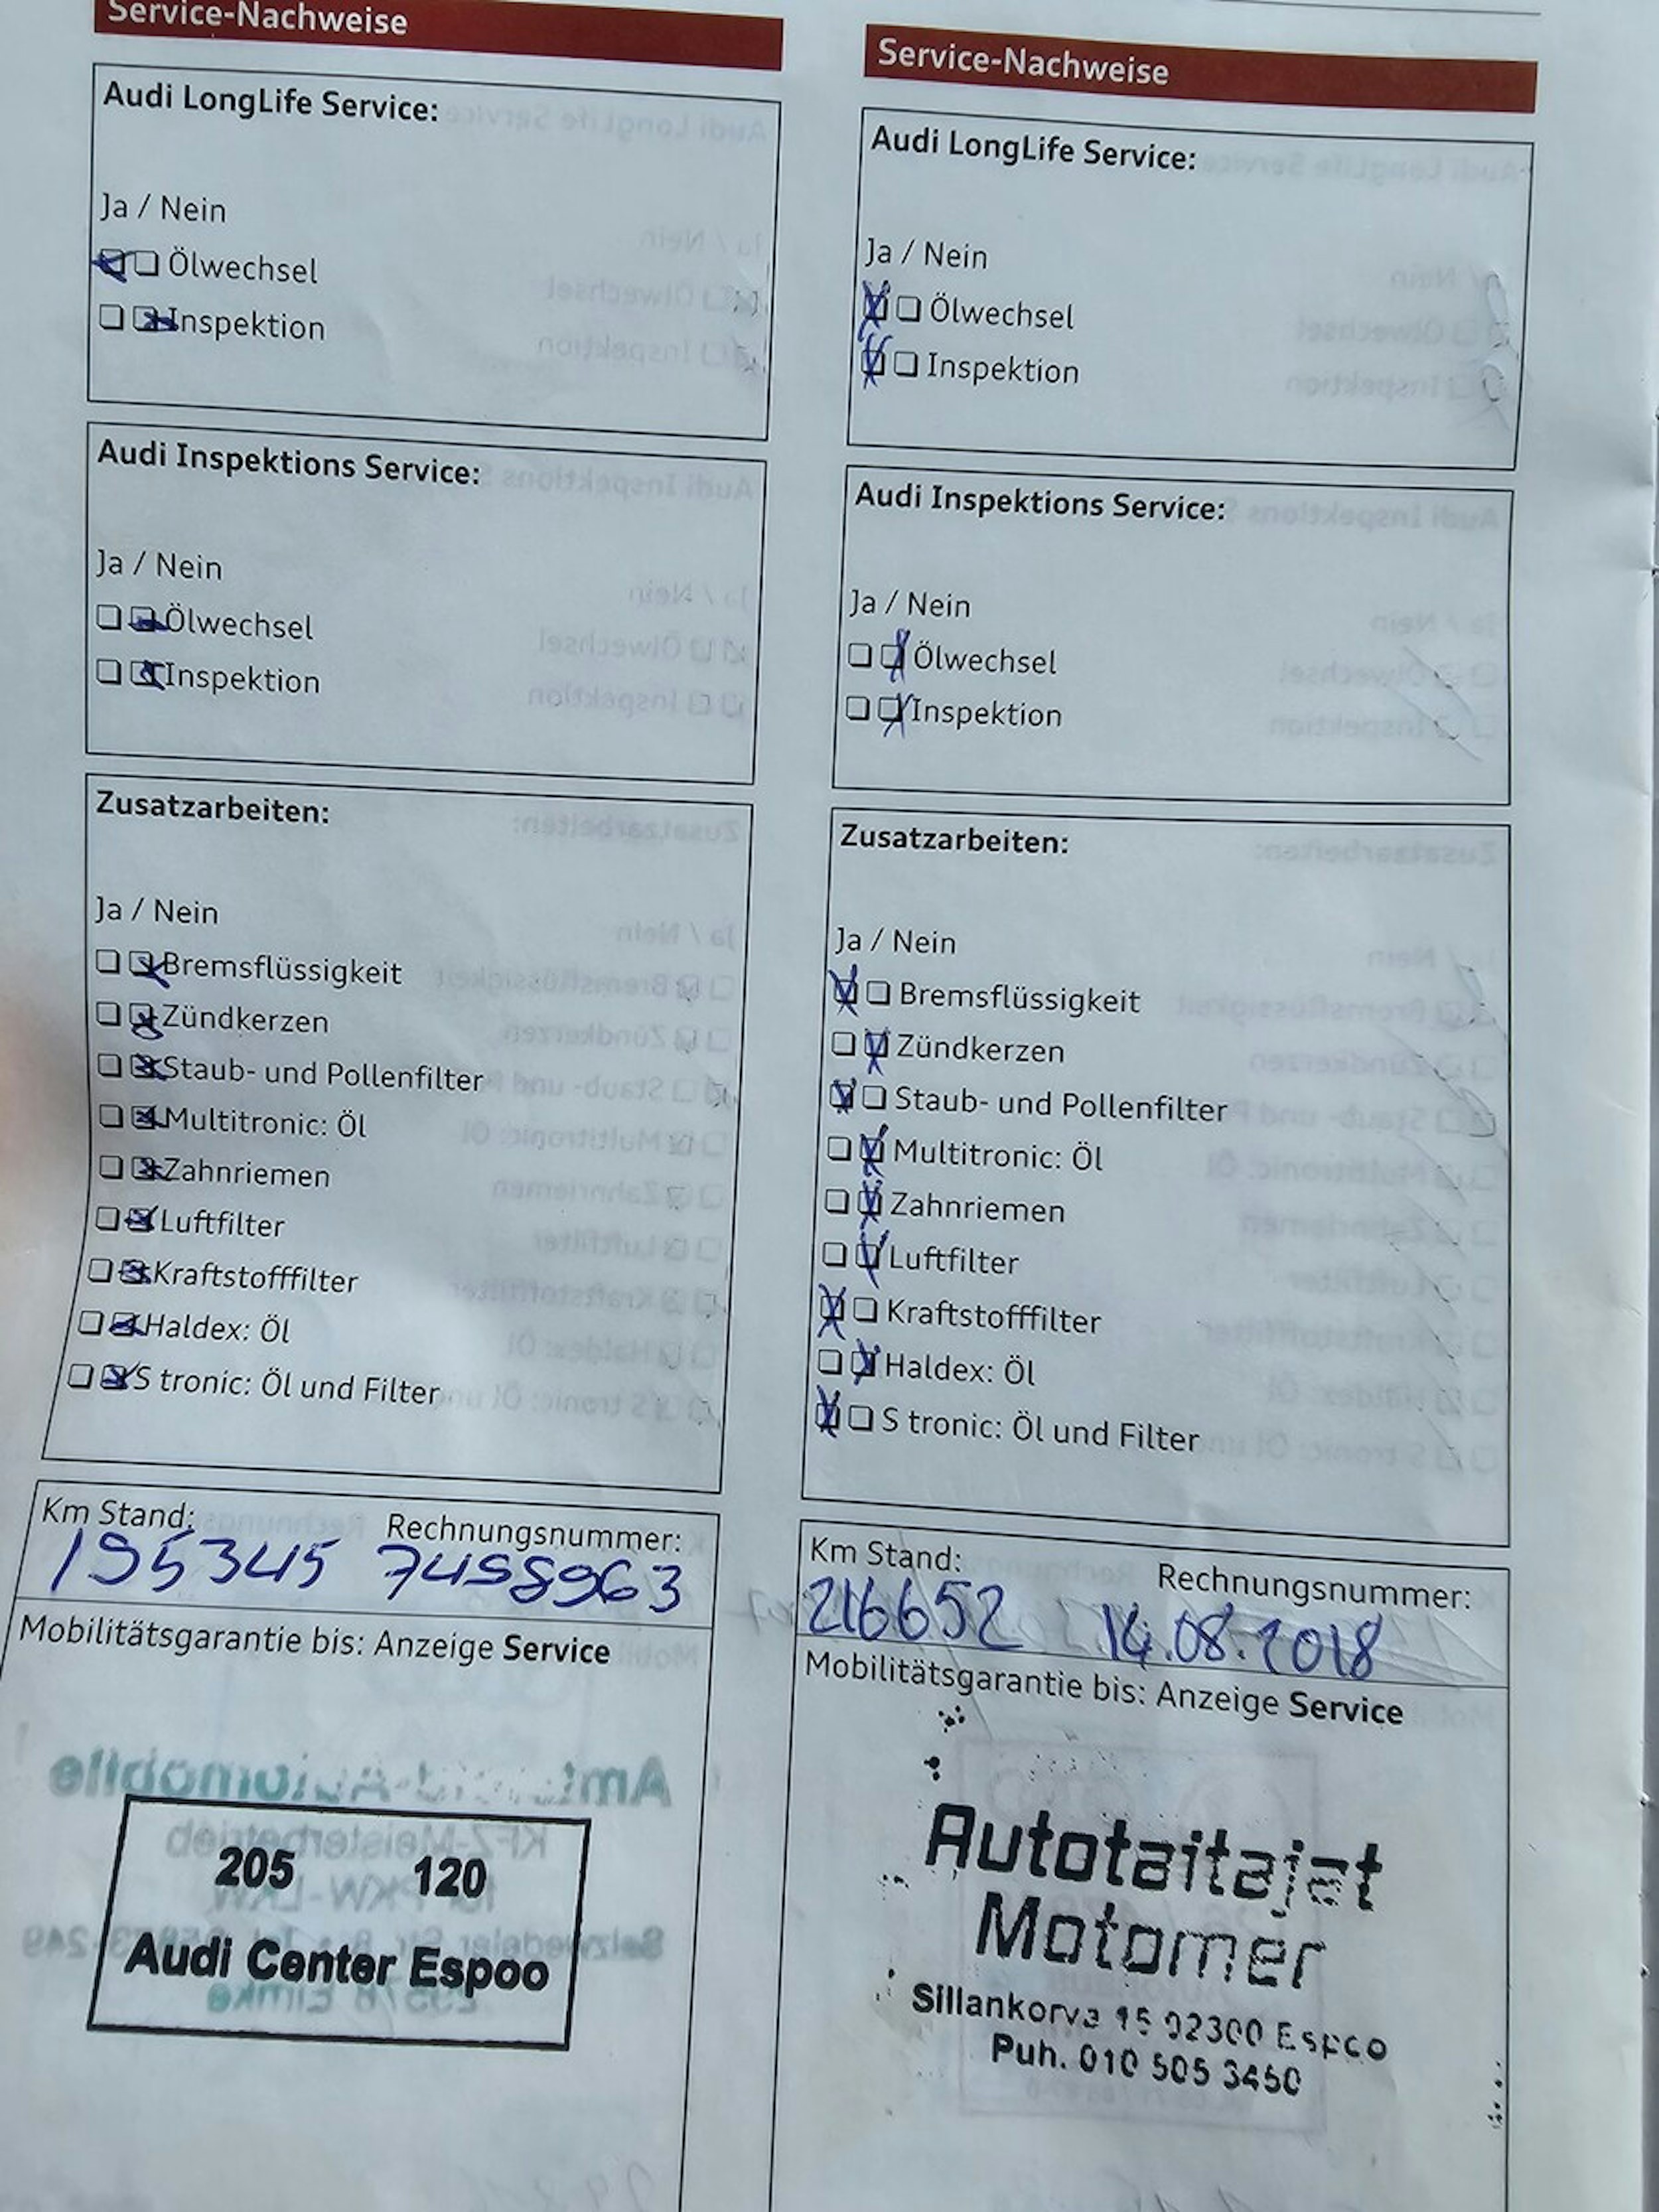 Service-Nachweise
Audi LongLife Service:
Ja / Nein
Ölwechsel
Inspektion
Audi Inspektions Service:
Ja / Nein
Ölwechsel
Inspektion
Zusatzarbeiten:
Ja / Nein
Bremsflüssigkeit
Zündkerzen
Staub- und Pollenfilter
Multitronic: Öl
Zahnriemen
Luftfilter
Kraftstofffilter
Haldex: Öl
S tronic: Öl und Filter
Km Stand: Rechnungsnummer:
195345 7498963
Mobilitätsgarantie bis: Anzeige Service
205 120
Audi Center Espoo
Service-Nachweise
Audi LongLife Service:
Ja / Nein
Ölwechsel
Inspektion
Audi Inspektions Service:
Ja / Nein
Ölwechsel
Inspektion
Zusatzarbeiten:
Ja / Nein
Bremsflüssigkeit
Zündkerzen
Staub- und Pollenfilter
Multitronic: Öl
Zahnriemen
Luftfilter
Kraftstofffilter
Haldex: Öl
S tronic: Öl und Filter
Km Stand: Rechnungsnummer:
216652 14.08.2018
Mobilitätsgarantie bis: Anzeige Service
Autotaitajat
Motomer
Sillankorva 15 02300 Espoo
Puh. 010 505 3450